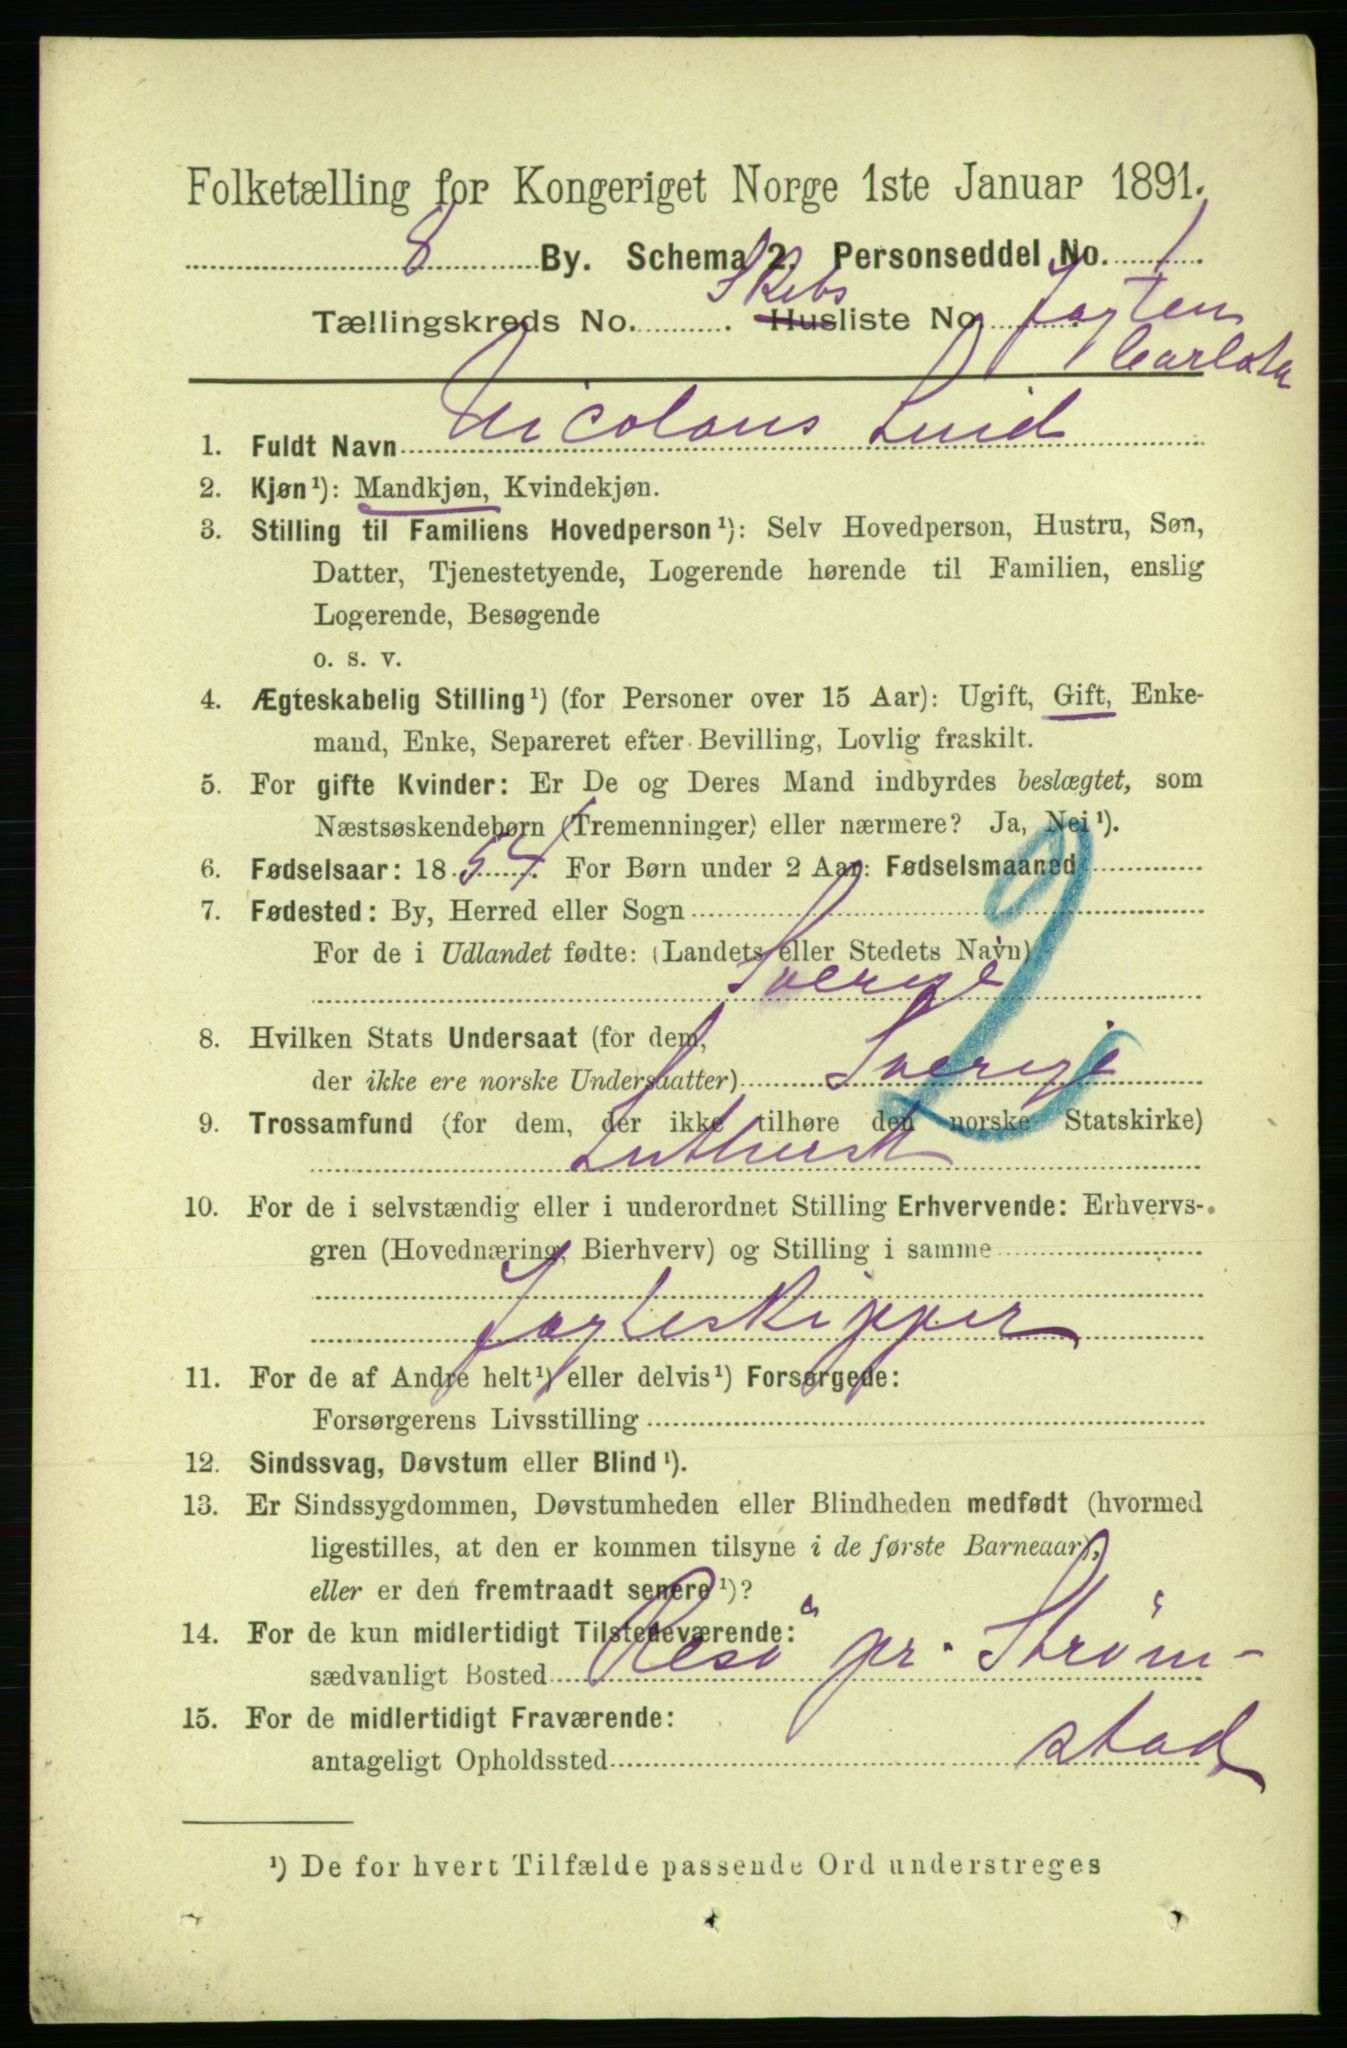 Folketælling for Kongeriget Norge 1ste Januar 1891.
8 By. Schema 2. Personseddel No. 1
Tællingskreds No. Skibs Husliste No. Jagten
Carlota
1. Fuldt Navn Nicolaus
2. Kjøn¹): Mandkjøn, Kvindekjøn.
3. Stilling til Familiens Hovedperson¹): Selv Hovedperson, Hustru, Søn,
Datter, Tjenestetyende, Logerende hørende til Familien, enslig
Logerende, Besøgende
o. s. v.
4. Ægteskabelig Stilling¹) (for Personer over 15 Aar): Ugift, Gift, Enke-
mand, Enke, Separeret efter Bevilling, Lovlig fraskilt.
5. For gifte Kvinder: Er De og Deres Mand indbyrdes beslægtet, som
Næstsøskendebørn (Tremenninger) eller nærmere? Ja, Nei¹).
6. Fødselsaar: 1854. For Børn under 2 Aar: Fødselsmaaned
7. Fødested: By, Herred eller Sogn
For de i Udlandet fødte: (Landets eller Stedets Navn)
Sverige
8. Hvilken Stats Undersaat (for dem,
der ikke ere norske Undersaatter) Sverige
9. Trossamfund (for dem, der ikke tilhøre den norske Statskirke)
Luthersk
10. For de i selvstændig eller i underordnet Stilling Erhvervende: Erhvervs-
gren (Hovednæring, Bierhverv) og Stilling i samme
Jagteskipper
11. For de af Andre helt¹) eller delvis¹) Forsørgede:
Forsørgerens Livsstilling
12. Sindssvag, Døvstum eller Blind¹).
13. Er Sindssygdommen, Døvstumheden eller Blindheden medfødt (hvormed
ligestilles, at den er kommen tilsyne i de første Barneaar),
eller er den fremtraadt senere¹)?
14. For de kun midlertidigt Tilstedeværende:
sædvanligt Bosted Resö pr. Ström-
15. For de midlertidigt Fraværende:
antageligt Opholdssted stad
¹) De for hvert Tilfælde passende Ord understreges
2